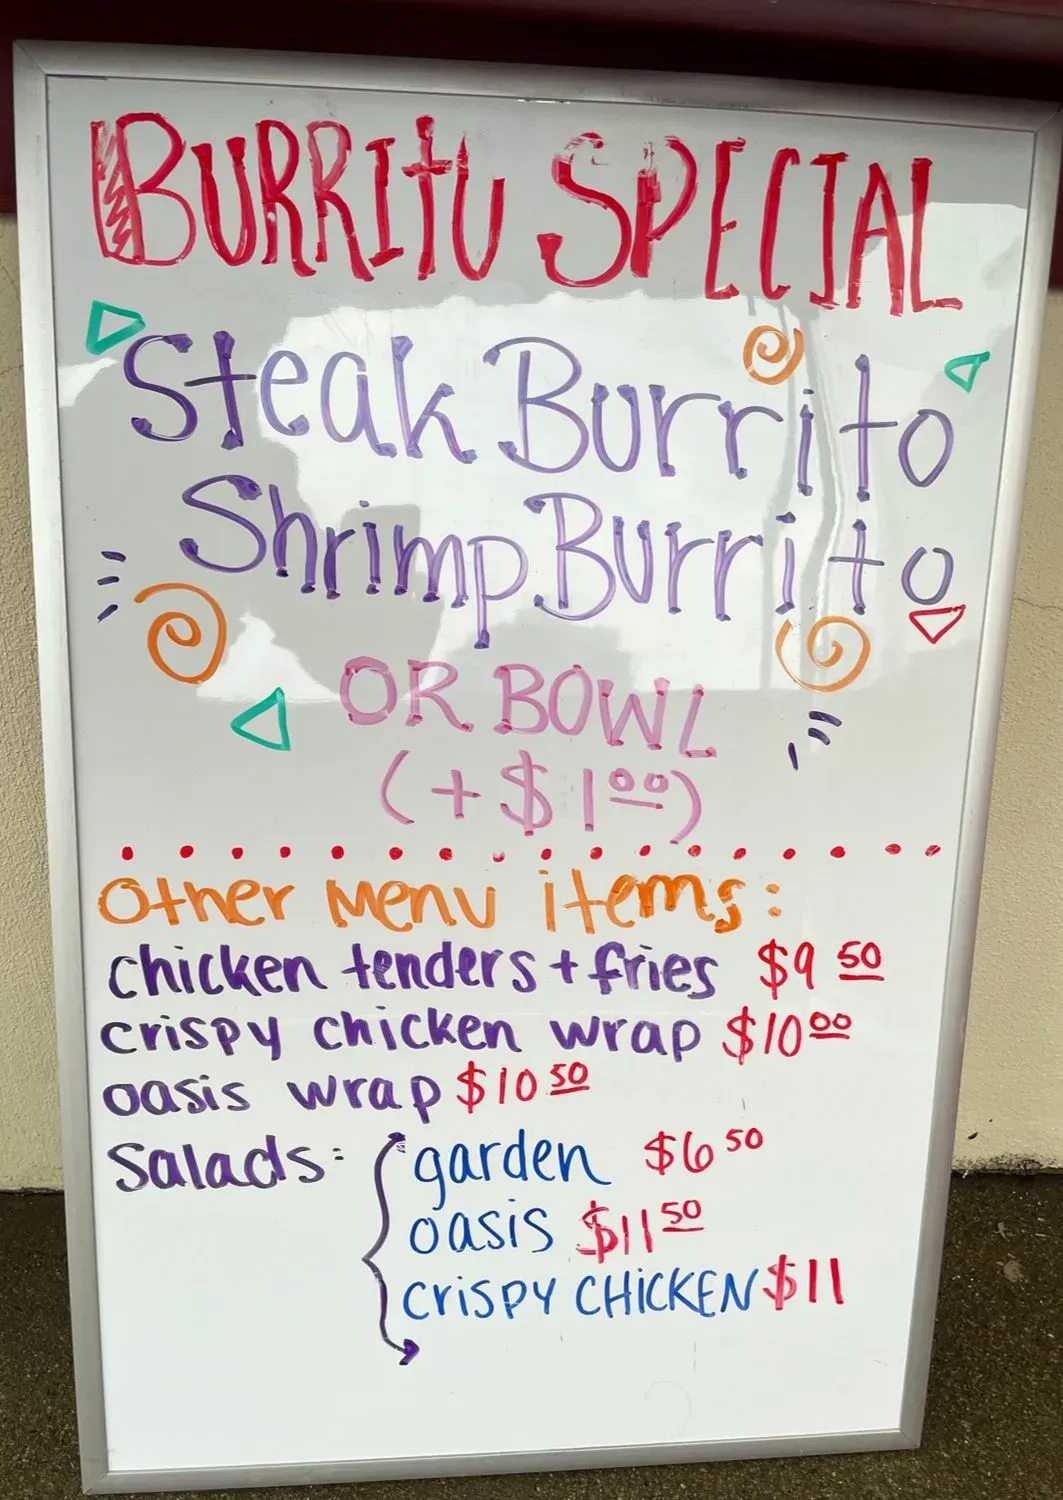 BURRITO SPECIAL
Steak Burrito
Shrimp Burrito
OR BOWL
(+ $1.00)
Other Menu items:
chicken tenders + fries $9 50
crispy chicken wrap $10 00
oasis wrap $10 50
Salads: garden $6 50
oasis $11 50
crispy CHICKEN $11